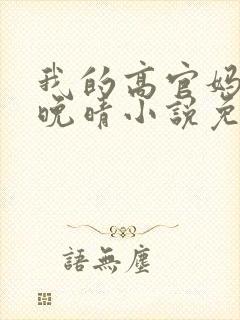 我的高官妈
晚晴小説免
語無塵